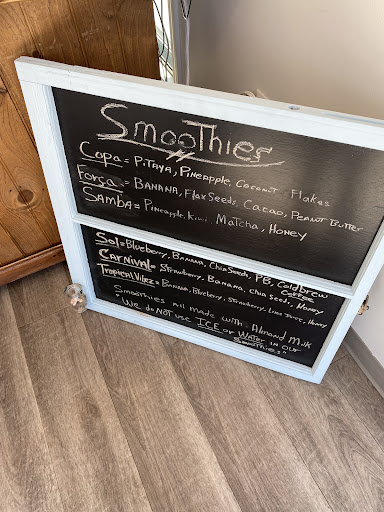 SmooThies
Copa = PiTAYA, PiNeapple, Coconut Flakes
Força = BANANA, FlaxSeeds, Cacao, PEANUT BUTTER
SAMBA = Pineapple, Kiwi, MATCHA, HONEY
Sol = Blueberry, BANANA, Chia Seeds, PB, Cold brew COFFEE
CARNIVAL = Strawberry, BANANA, Chia Seeds, Honey
Tropical Vibez = Banana, Blueberry, Strawberry, Lime Juice, Honey
Smoothies All made with Almond Milk
"We do NOT USE ICE or WATER IN OUR
SMOOTHIES"